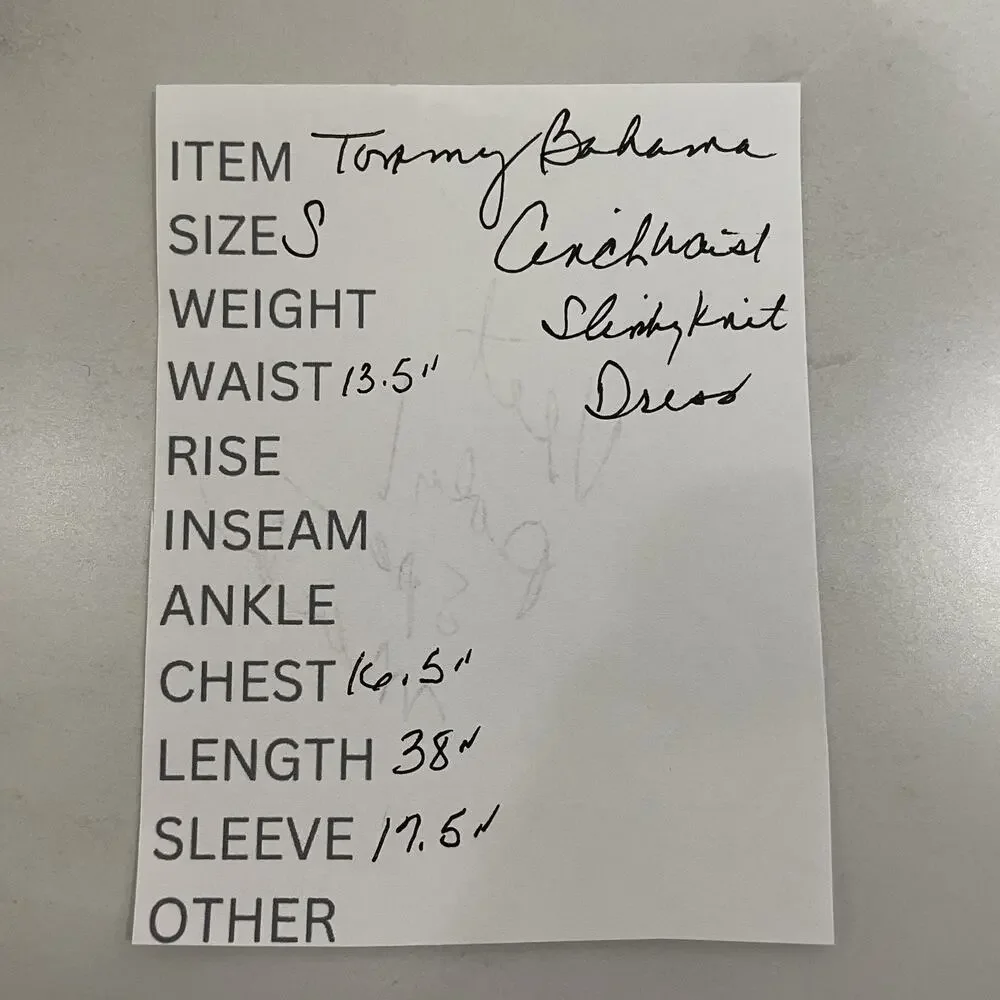 ITEM Tommy Bahama
SIZE S Cinch Waist
WEIGHT Slinky Knit
WAIST 13.5" Dress
RISE
INSEAM
ANKLE
CHEST 16.5"
LENGTH 38"
SLEEVE 17.5"
OTHER